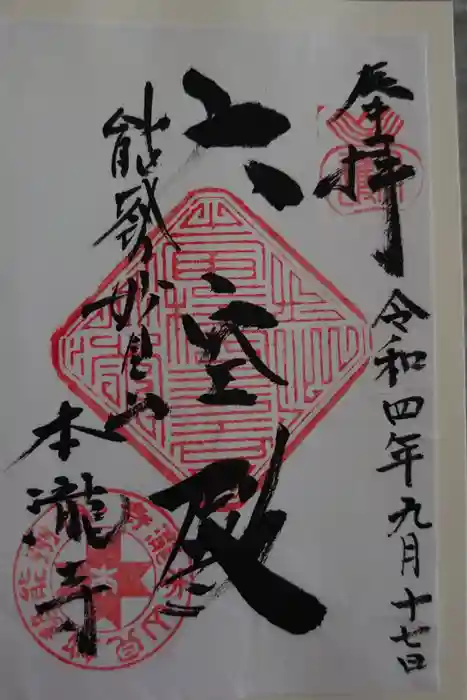 奉拝
令和四年九月十七日
六空殿
能勢妙見山
本瀧寺